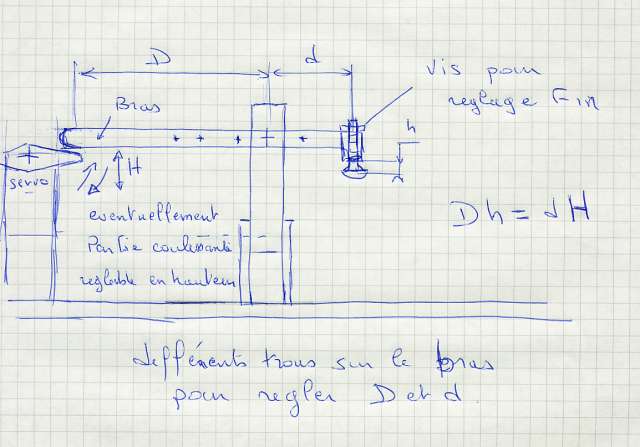 D
d
vis pour
reglage Fin
Bras
h
H
servo
eventuellement
Partie coulissante
reglable en hauteur
Dh = dH
différents trous sur le bras
pour regler D et d.